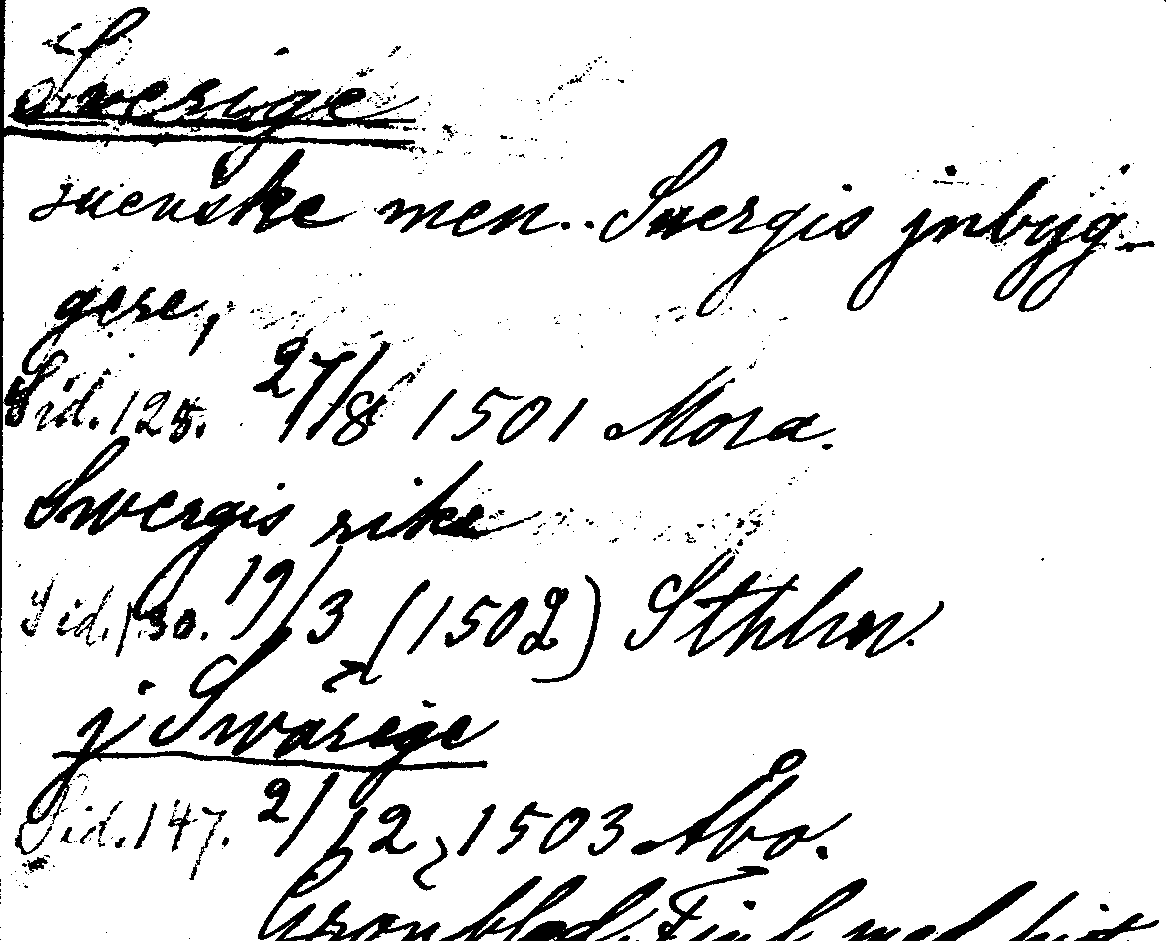 Sverige
suenske men.. Suergis jnbyg-
gere,
Sid. 125. 27/8 1501 Mora.
Swergis rike
Sid. 130. 19/3 (1502) Sthlm.
j Swärige
Sid. 147. 2/12 1503 Åbo.
Grönblad, Finl. med